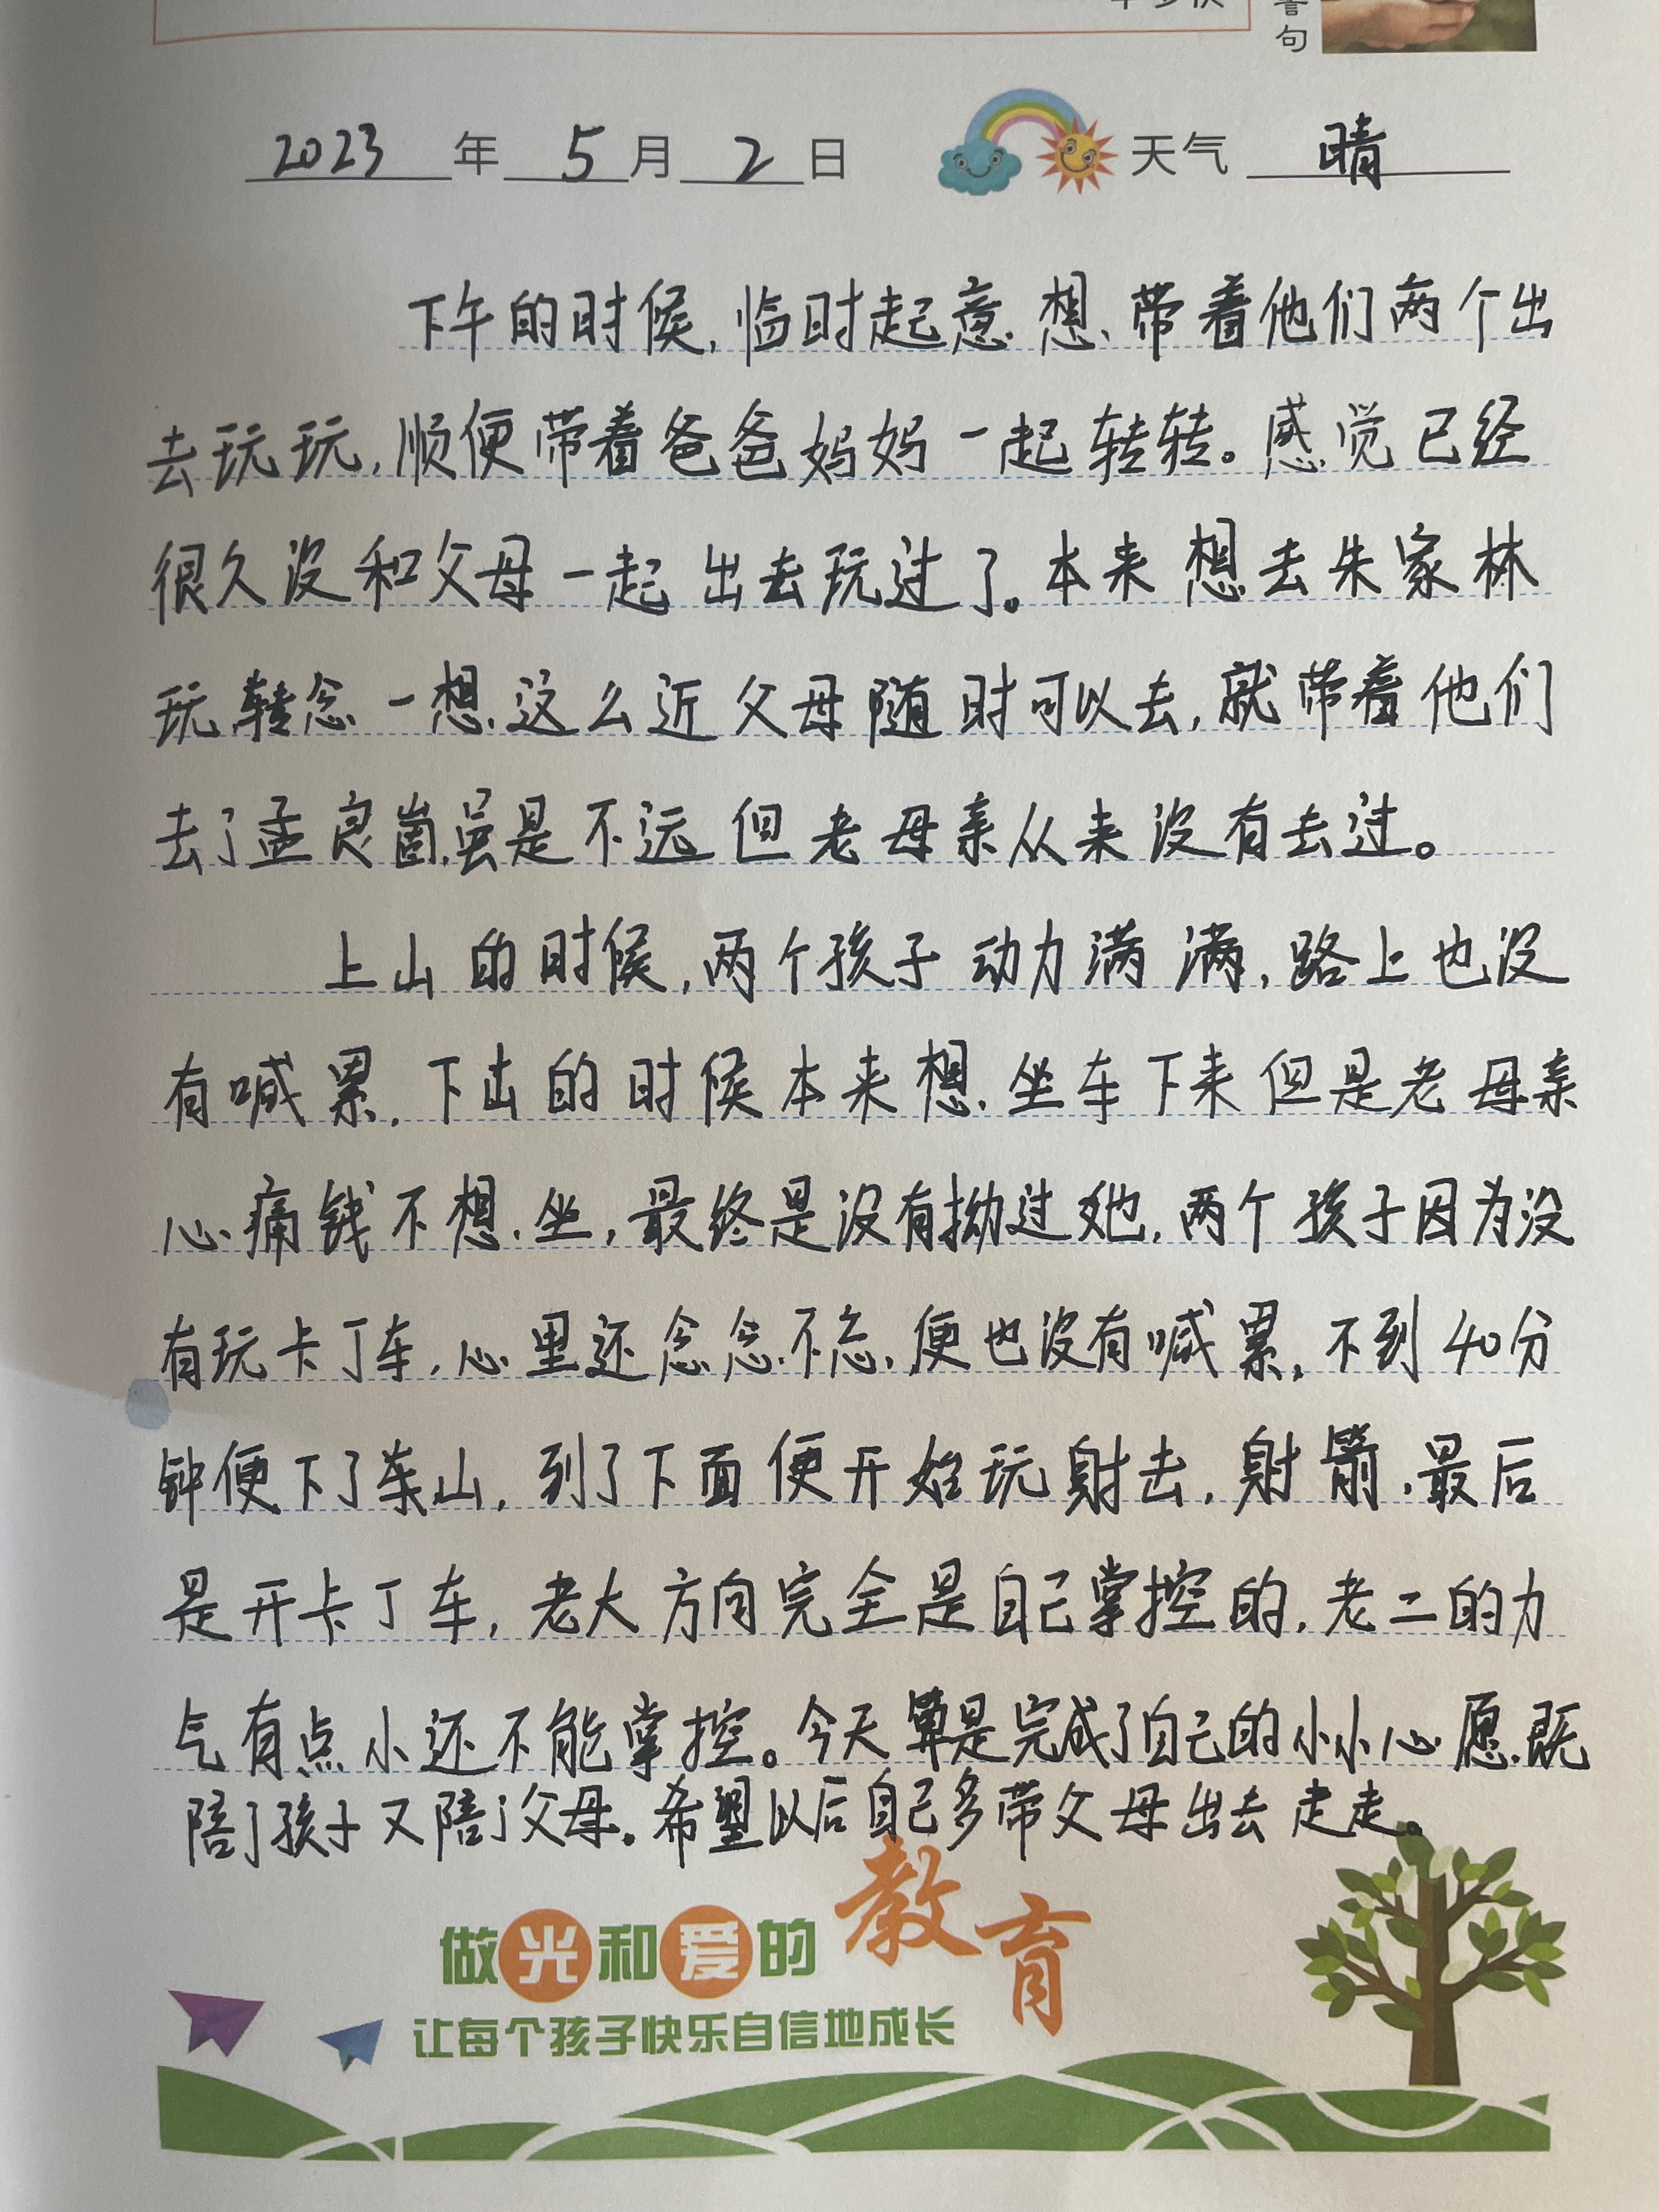 警句
2023 年 5 月 2 日 天气 晴
下午的时候,临时起意.想、带着他们两个出
去玩玩,顺便带着爸爸妈妈一起转转。感觉已经
很久没和父母一起出去玩过了。本来想去朱家林
玩转念一想.这么近父母随时可以去,就带着他们
去了孟良崮,虽是不远但老母亲从来没有去过。
上山的时候,两个孩子动力满满,路上也没
有喊累.下山的时候本来想.坐车下来但是老母亲
心痛钱不想.坐,最终是没有拗过她,两个孩子因为没
有玩卡丁车,心里还念念不忘,便也没有喊累,不到40分
钟便下了山,到了下面便开始玩射击,射箭,最后
是开卡丁车,老大方向完全是自己掌控的,老二的力
气有点小还不能掌控。今天算是完成了自己的小小心愿.既
陪了孩子又陪了父母。希望以后自己多带父母出去走走。
做光和爱的教育
让每个孩子快乐自信地成长